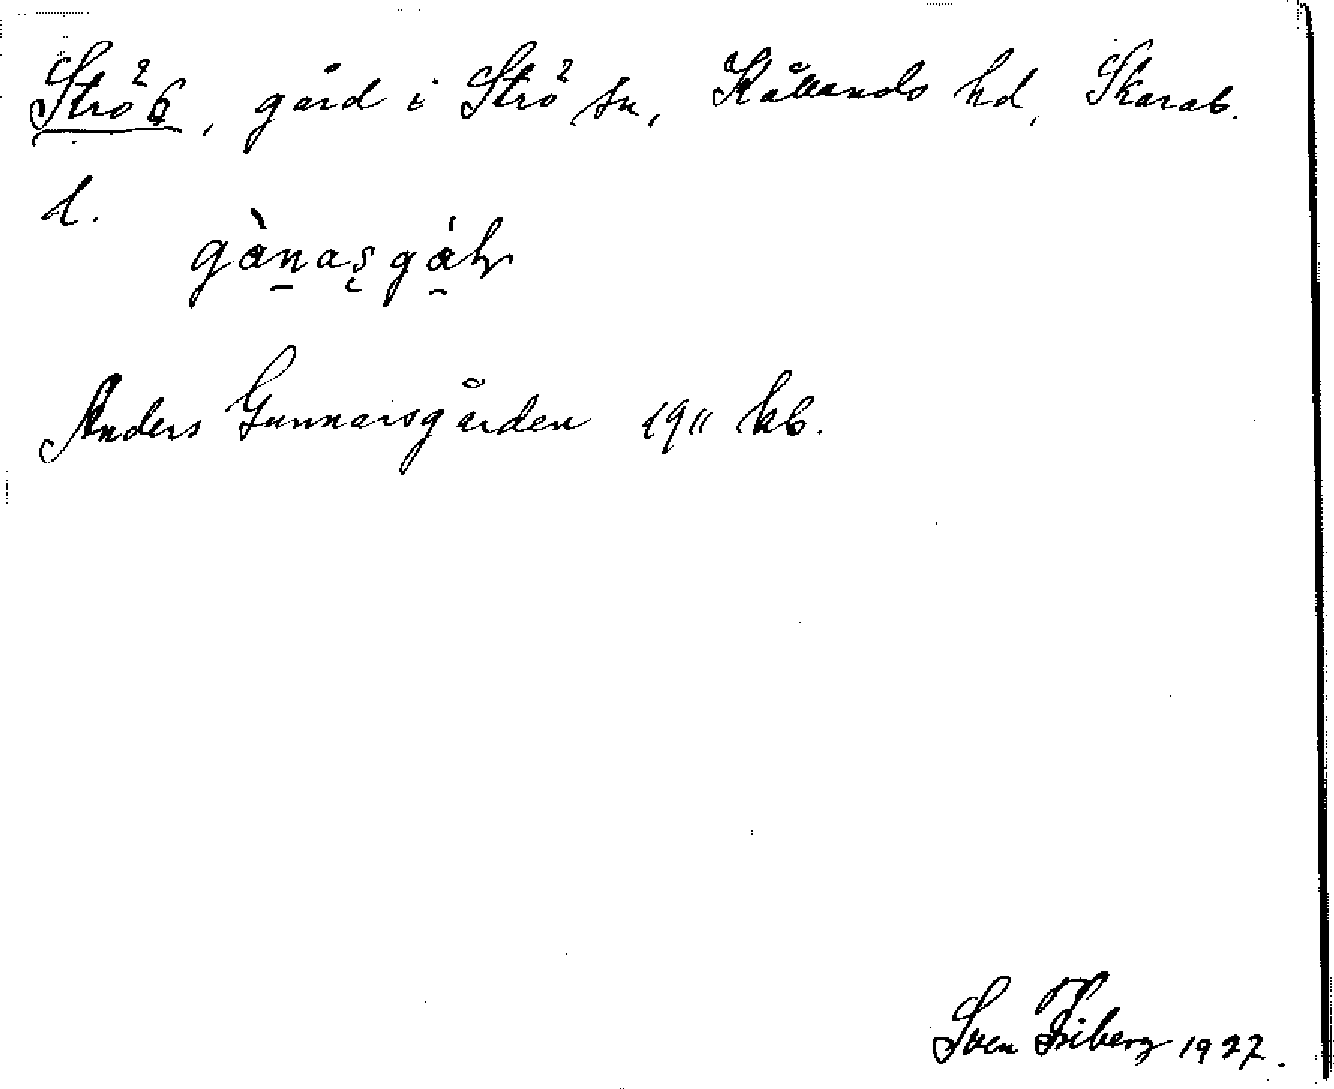 Strö 6, gård i Strö sn, Kållands hd, Skarab.
l.
gànas̨gáḷn
Anders Gunnarsgården 1911 kb.
Sven Friberg 1927.